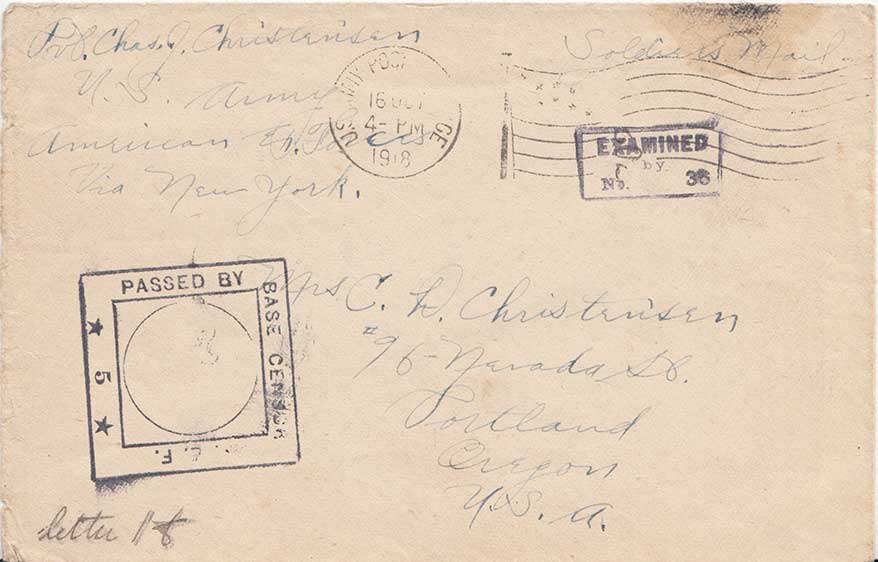 Pvt. Chas. J. Christensen
U. S. Army
American Ex. Forces
Via New York.
16 OCT
4 - PM
1918
Soldiers Mail
EXAMINED
by
No. 36
PASSED BY
BASE CENSOR
. E. F.
★ 5 ★
Mrs C. D. Christensen
#96 - Nevada St.
Portland
Oregon
U. S. A.
letter 18